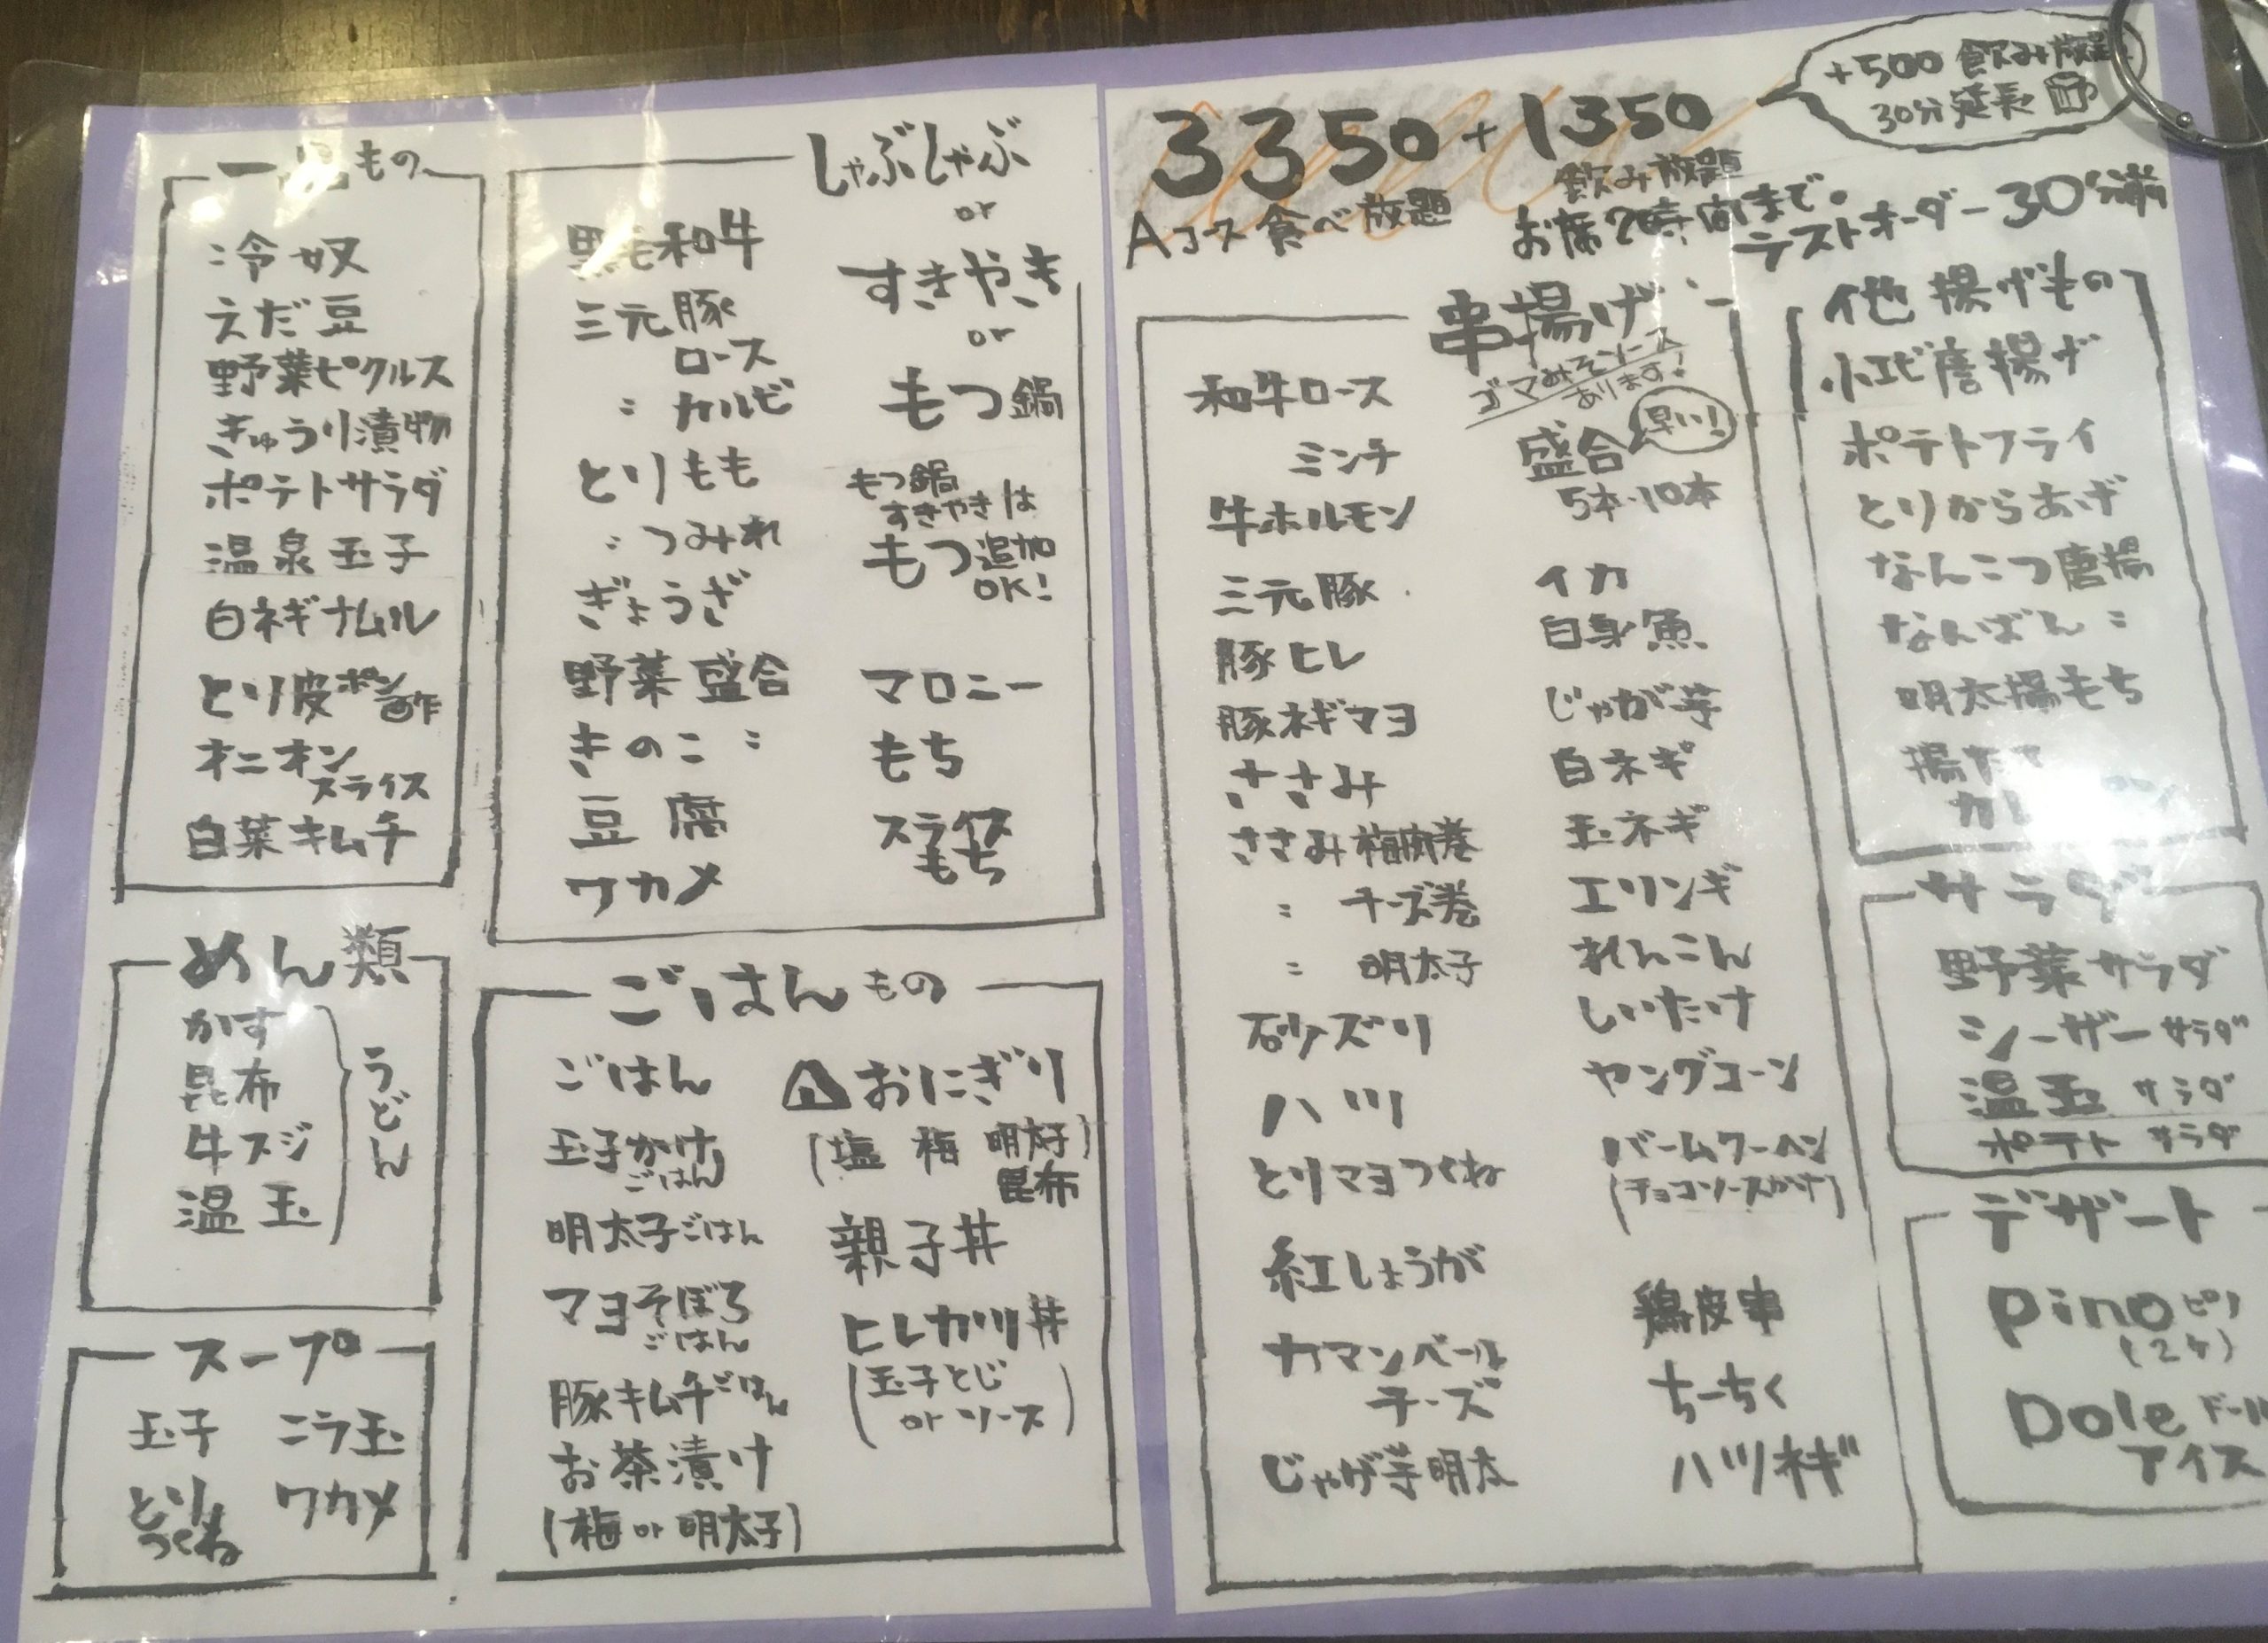 一品もの
冷奴
えだ豆
野菜ピクルス
きゅうり漬物
ポテトサラダ
温泉玉子
白ネギナムル
とり皮ポン酢
オニオン
スライス
白菜キムチ
めん類
かす
昆布
牛スジ
温玉
うどん
スープ
玉子 ニラ玉
とり ワカメ
つくね
しゃぶしゃぶ
or
すきやき
or
もつ鍋
もつ鍋
すきやきは
もつ追加
OK!
黒毛和牛
三元豚
ロース
〃 カルビ
とりもも
〃 つみれ
ぎょうざ
野菜盛合
きのこ 〃
豆腐
ワカメ
マロニー
もち
スライス
もち
ごはんもの
ごはん
玉子かけ
ごはん
明太子ごはん
マヨそぼろ
ごはん
豚キムチごはん
お茶漬け
(梅 or 明太子)
おにぎり
(塩 梅 明太子)
昆布
親子丼
ヒレカツ丼
(玉子とじ
or ソース)
3350+1350
飲み放題
Aコース食べ放題
+500 飲み放題
30分延長
お席2時間まで。
ラストオーダー30分前
串揚げ
ゴマみそソース
あります!
和牛ロース
ミンチ
牛ホルモン
三元豚
豚ヒレ
豚ネギマヨ
ささみ
ささみ梅肉巻
〃 チーズ巻
〃 明太子
砂ズリ
ハツ
とりマヨつくね
紅しょうが
カマンベール
チーズ
じゃが芋明太
盛合
早い!
5本・10本
イカ
白身魚
じゃが芋
白ネギ
玉ネギ
エリンギ
れんこん
しいたけ
ヤングコーン
バームクーヘン
(チョコソースがけ)
鶏皮串
ちーちく
ハツネギ
他揚げもの
小エビ唐揚げ
ポテトフライ
とりからあげ
なんこつ唐揚
なんばん 〃
明太揚もち
サラダ
野菜サラダ
シーザーサラダ
温玉サラダ
ポテトサラダ
デザート
pino ピノ
(2ケ)
Dole ドール
アイス